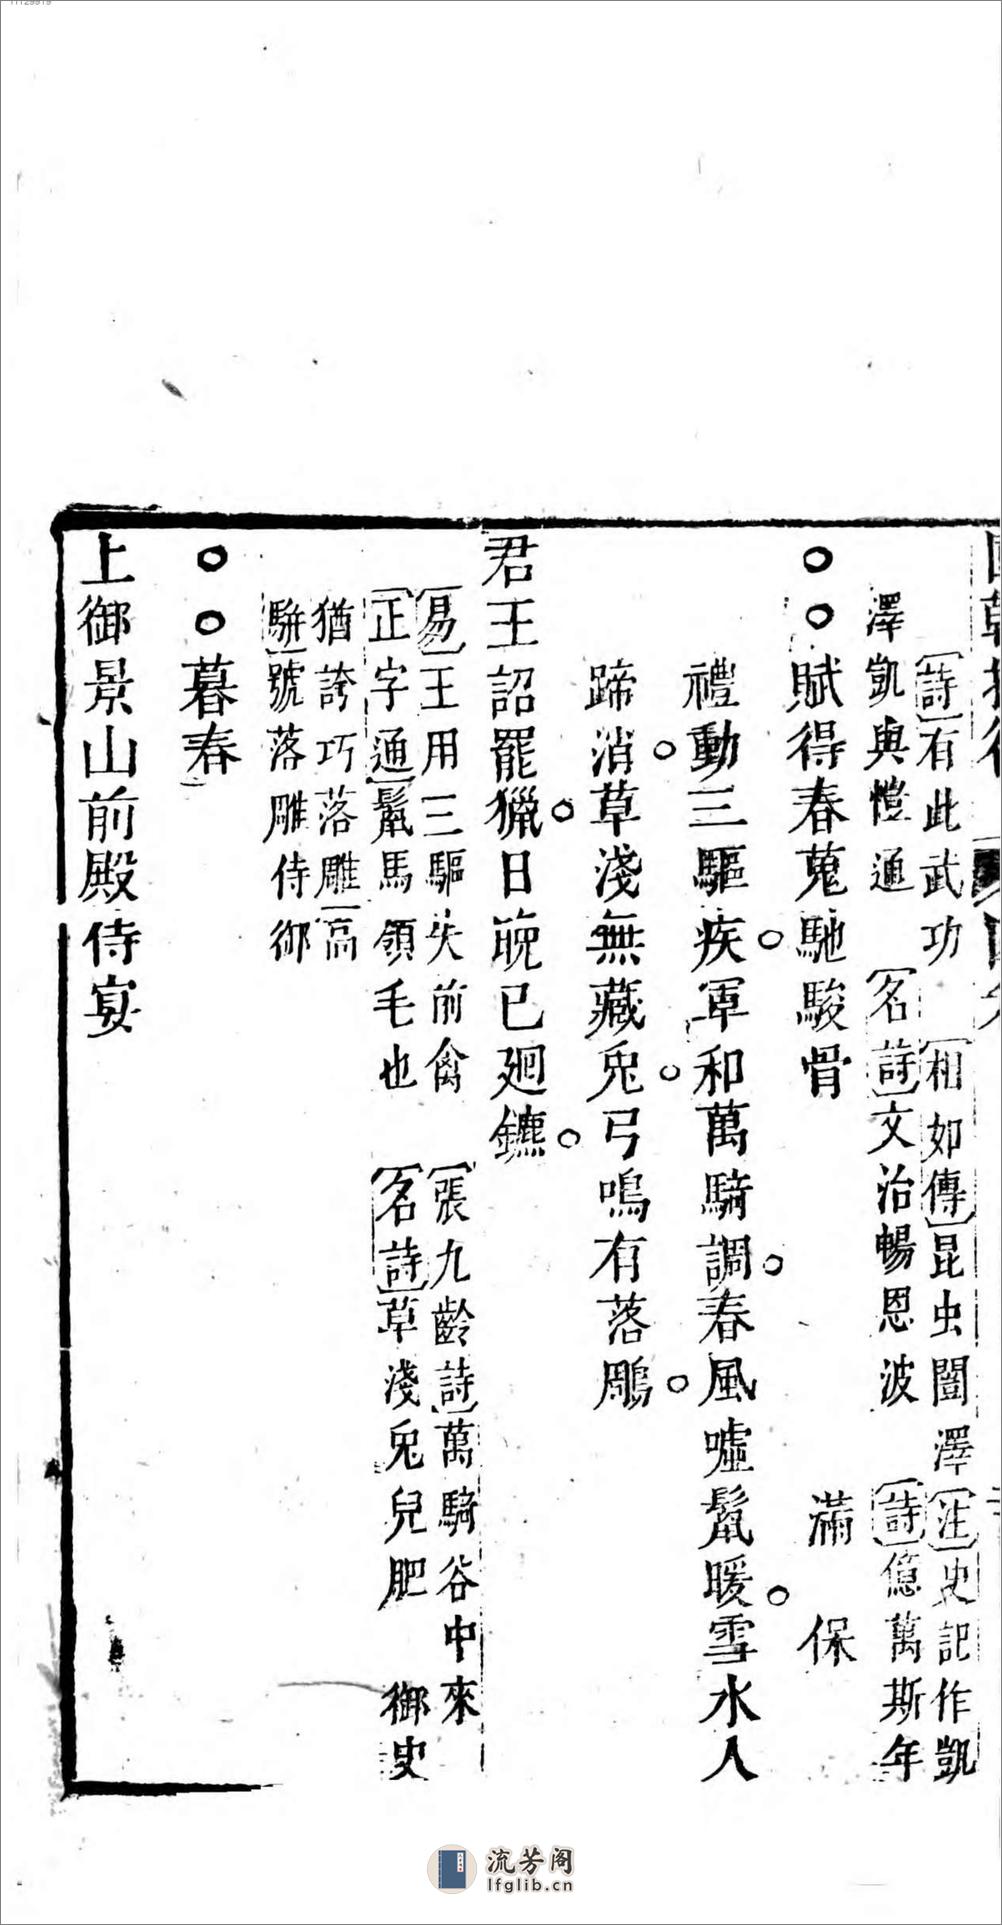 詩有此武功 相如傳昆虫闓澤 注史記作凱
澤凱與愷通 名詩文治暢恩波 詩億萬斯年
○○賦得春蒐馳駿骨 滿保
禮動三驅疾○軍和萬騎調○春風噓鬣暖○雪水人
蹄消○草淺無藏兔○弓鳴有落鵰○
君王詔罷獵○日晩已廻鑣○
易王用三驅失前禽 張九齡詩萬騎谷中來
正字通鬣馬領毛也 名詩草淺兔兒肥 御史
猶誇巧落雕 高
駢號落雕侍御
○○暮春
上御景山前殿侍宴
流芳阁
lfglib.cn